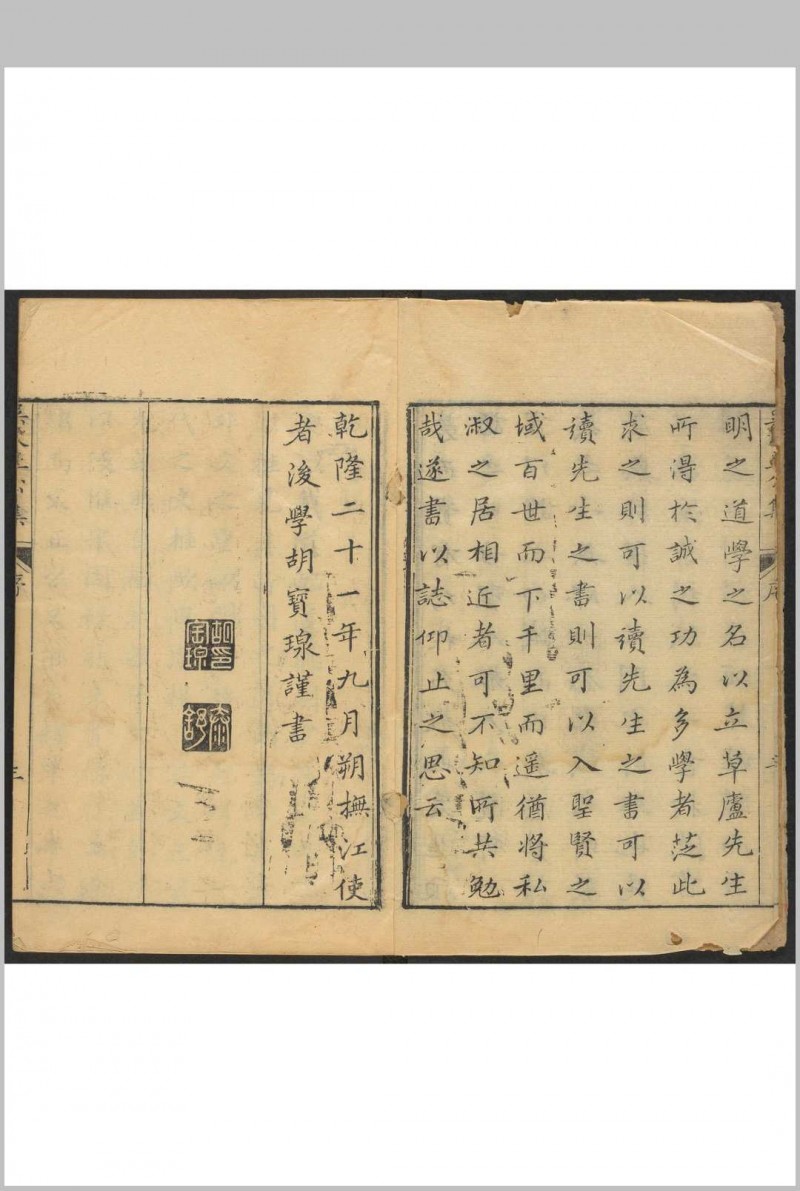 明之道學之名以立草廬先生
所得於誠之功為多學者茍此
求之則可以讀先生之書可以
讀先生之書則可以入聖賢之
域百世而下千里而遥猶將私
淑之居相近者可不知所共勉
哉遂書以誌仰止之思云
乾隆二十一年九月朔撫江使
者後學胡寳瑔謹書
胡印
寳瑔
泰
舒
序
三